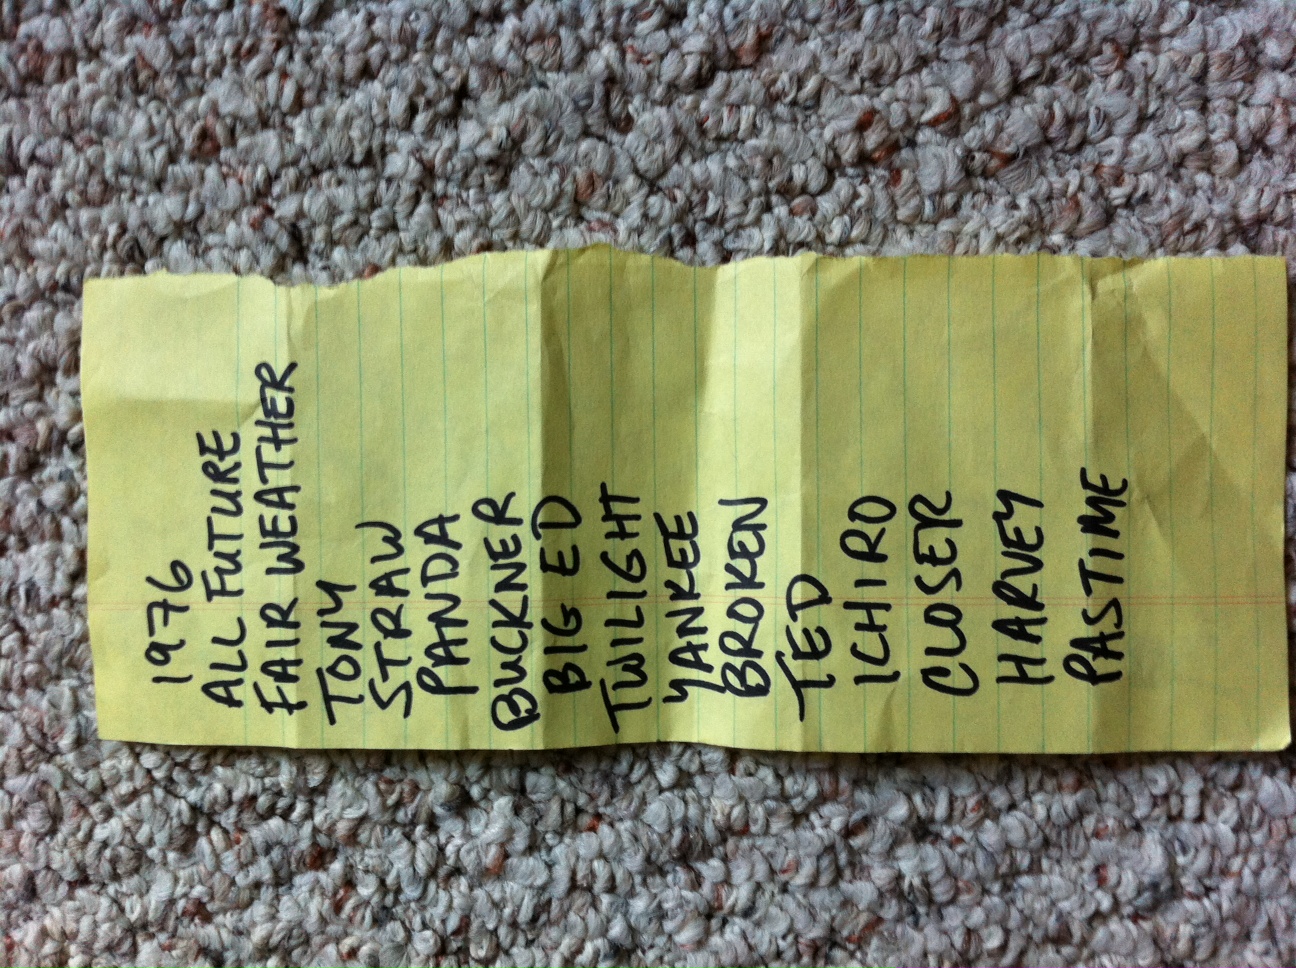 1976
ALL FUTURE
FAIR WEATHER
TONY
STRAW
PANDA
BUCKNER
BIG ED
TWILIGHT
YANKEE
BROKEN
TED
ICHIRO
CLOSER
HARVEY
PASTIME